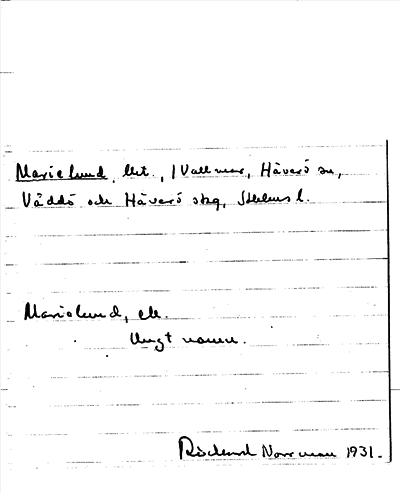 Marielund, lht., 1 Vallmar, Häverö sn,
Väddö och Häverö skg, Sthlms l.
Marielund, ele.
Ungt namn.
Norrman 1931.